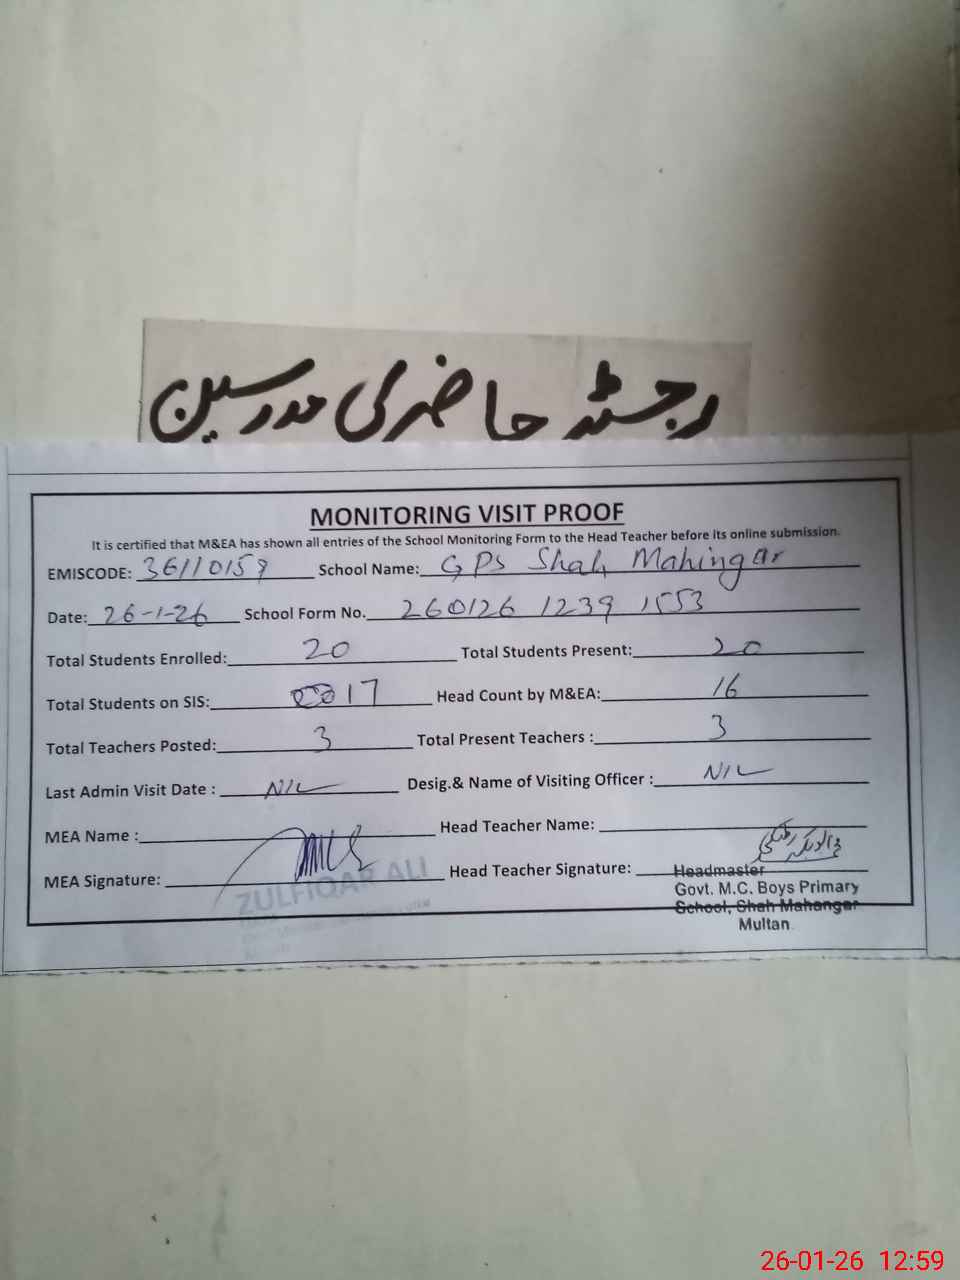 رجسٹر حاضری مدرسین
MONITORING VISIT PROOF
It is certified that M&EA has shown all entries of the School Monitoring Form to the Head Teacher before its online submission.
EMISCODE: 36110159 School Name: GPS Shah Mahingar
Date: 26-1-26 School Form No. 260126 1239 1553
Total Students Enrolled: 20 Total Students Present: 20
Total Students on SIS: 17 Head Count by M&EA: 16
Total Teachers Posted: 3 Total Present Teachers : 3
Last Admin Visit Date : NIL Desig.& Name of Visiting Officer : NIL
MEA Name : Head Teacher Name:
MEA Signature: Head Teacher Signature:
ZULFIQAR ALI
Headmaster
Govt. M.C. Boys Primary
School, Shah Mahangar
Multan
26-01-26 12:59